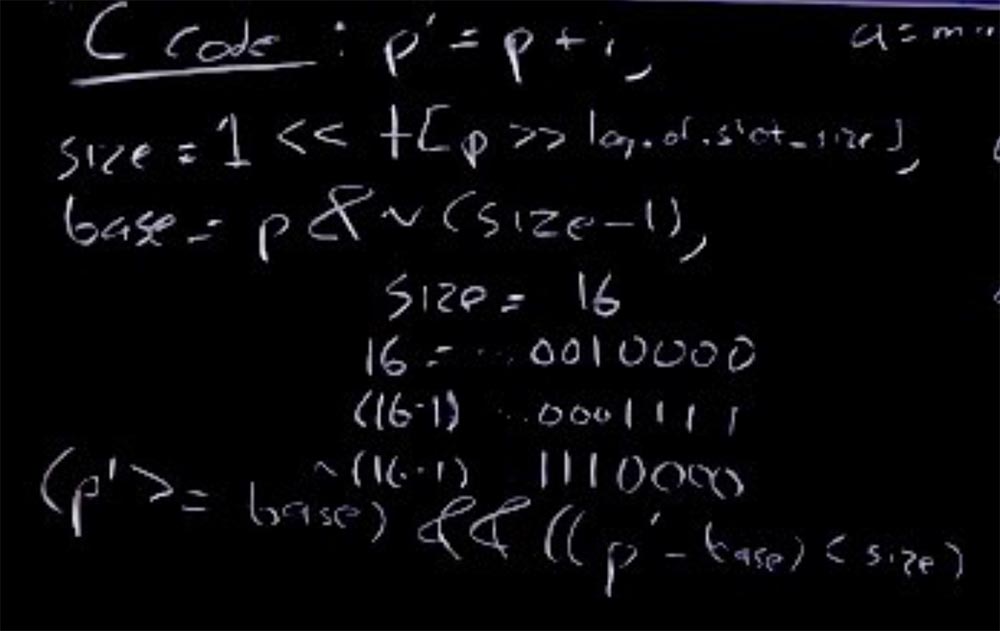 C code : p' = p + i, a = m
size = 1 << t[p >> log_of_slot_size],
base = p & ~(size-1),
size = 16
16 = ... 0010000
(16-1) ... 0001111
~(16-1) 1110000
(p' >= base) && ((p' - base) < size)